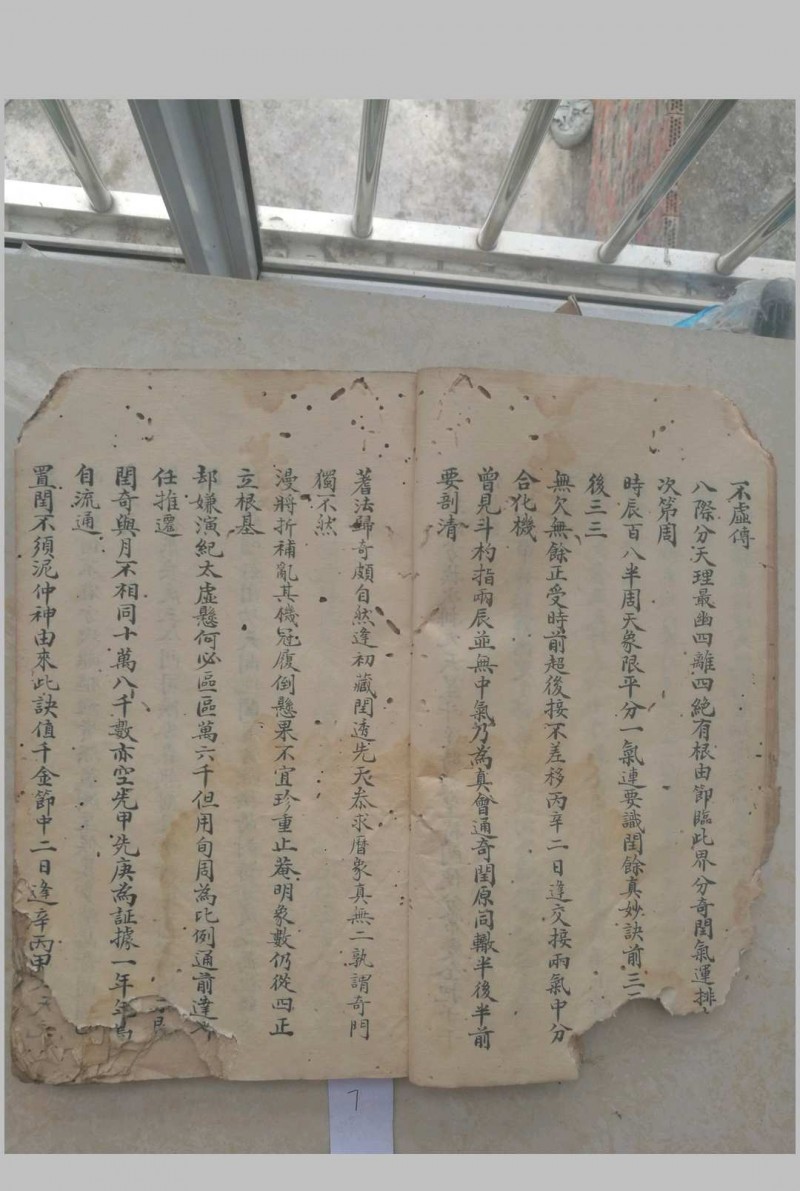 不虛傳
八際分天理最幽四離四絶有根由節臨此界分奇閏氣運排
次第周
時辰百八半周天象限平分一氣連要識閏餘真妙訣前三
後三三
無欠無餘正受時前超後接不差移丙辛二日逢交接兩氣中分
合化機
曾見斗杓指兩辰並無中氣乃為真會通奇閏原同轍半後半前
要剖清
蓍法歸奇頗自然逢初藏閏透先天恭求曆象真無二孰謂奇門
獨不然
漫將折補亂其機冠履倒懸果不宜珍重止菴明象數仍從四正
立根基
却嫌演紀太虛懸何必區區萬六千但用旬周為比例通前達
任推遷
閏奇與月不相同十萬八千數亦空先甲先庚為証據一年年
自流通
置閏不須泥仲神由來此訣值千金節中二日逢辛丙甲
7